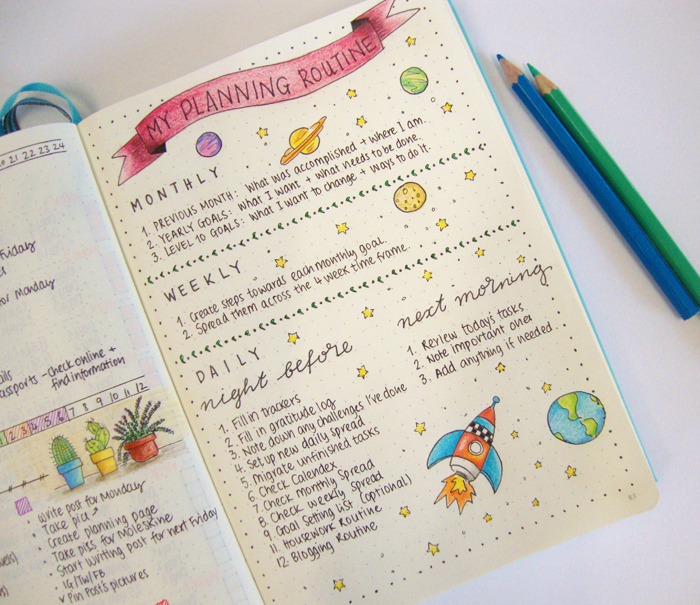 21 22 23 24
Friday
for Monday
- check online +
find information
2 3 4 5 6 7 8 9 10 11 12
Write post for Monday
Take pics
Create planning page
Take pics for Moleskine
Start writing post for next Friday
IG/TW/FB
Pin Post's pictures
MY PLANNING ROUTINE
MONTHLY
1. PREVIOUS MONTH: what was accomplished + where I am.
2. YEARLY GOALS: what I want + what needs to be done.
3. LEVEL 10 GOALS: what I want to change + ways to do it.
WEEKLY
1. Create steps towards each monthly goal.
2. Spread them across the 4 week time frame.
DAILY
night before
1. Fill in trackers
2. Fill in gratitude log
3. Note down any challenges I've done
4. Set up new daily spread
5. Migrate unfinished tasks
6. Check Calendex
7. Check monthly Spread
8. Check weekly Spread
9. Goal Setting List (optional)
11. Housework Routine
12. Blogging Routine
next morning
1. Review today's tasks
2. Note important ones
3. Add anything if needed